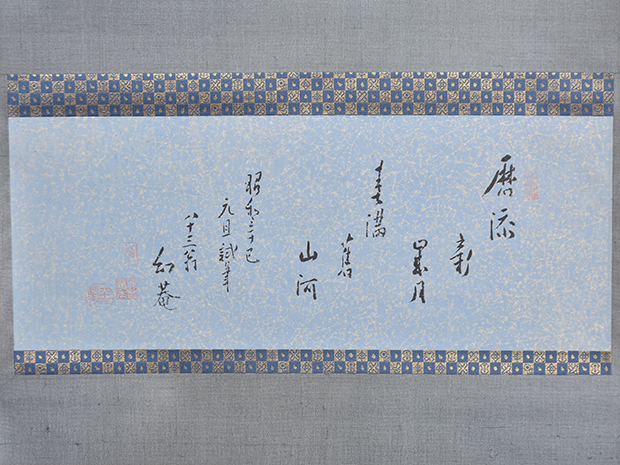 暦添
新
歳月
春満
舊
山河
昭和辛巳
元旦試筆
八十三翁
幻菴